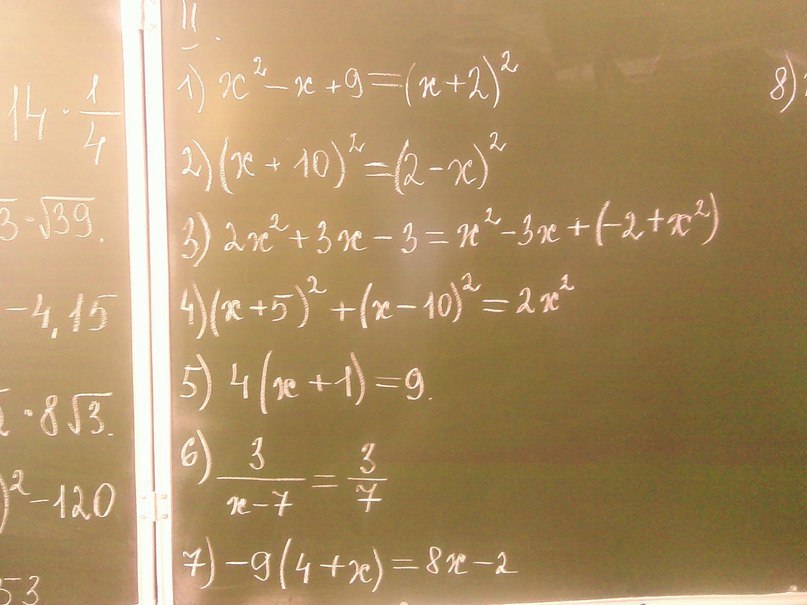 14 · 1/4
√39.
-4,15
· 8√3.
)² - 120
53
II.
1) x² - x + 9 = (x + 2)²
2) (x + 10)² = (2 - x)²
3) 2x² + 3x - 3 = x² - 3x + (-2 + x²)
4) (x + 5)² + (x - 10)² = 2x²
5) 4(x + 1) = 9.
6) 3/(x - 7) = 3/7
7) -9(4 + x) = 8x - 2
8)